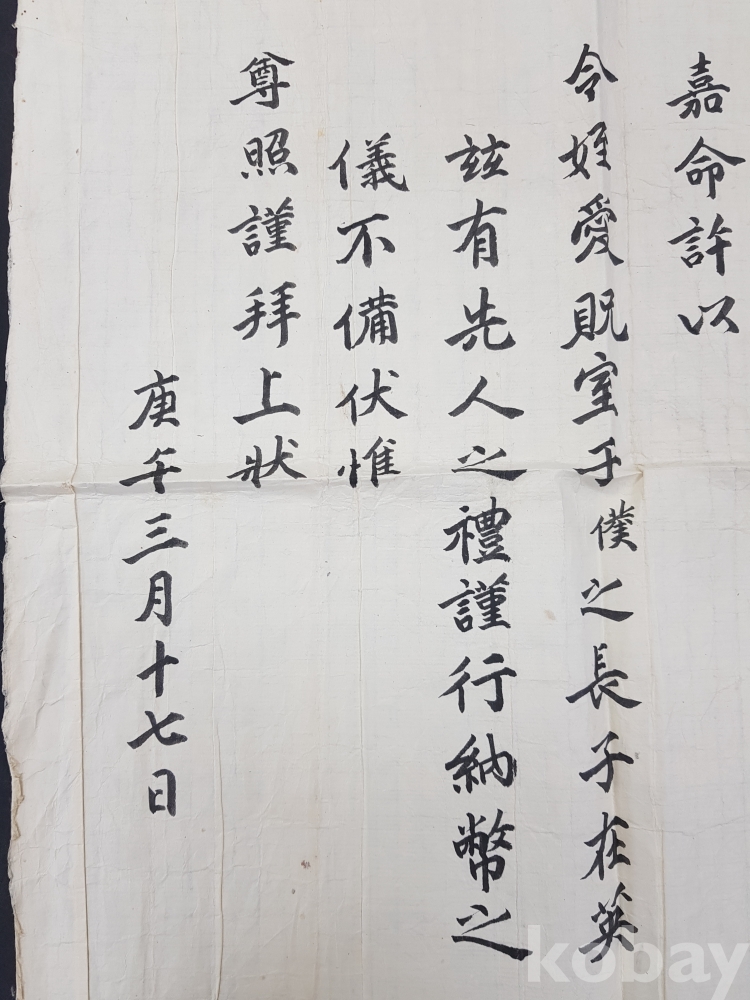 嘉命許以
令姪愛貺室于僕之長子在英
玆有先人之禮謹行納幣之
儀不備伏惟
尊照謹拜上狀
庚午三月十七日
kobay